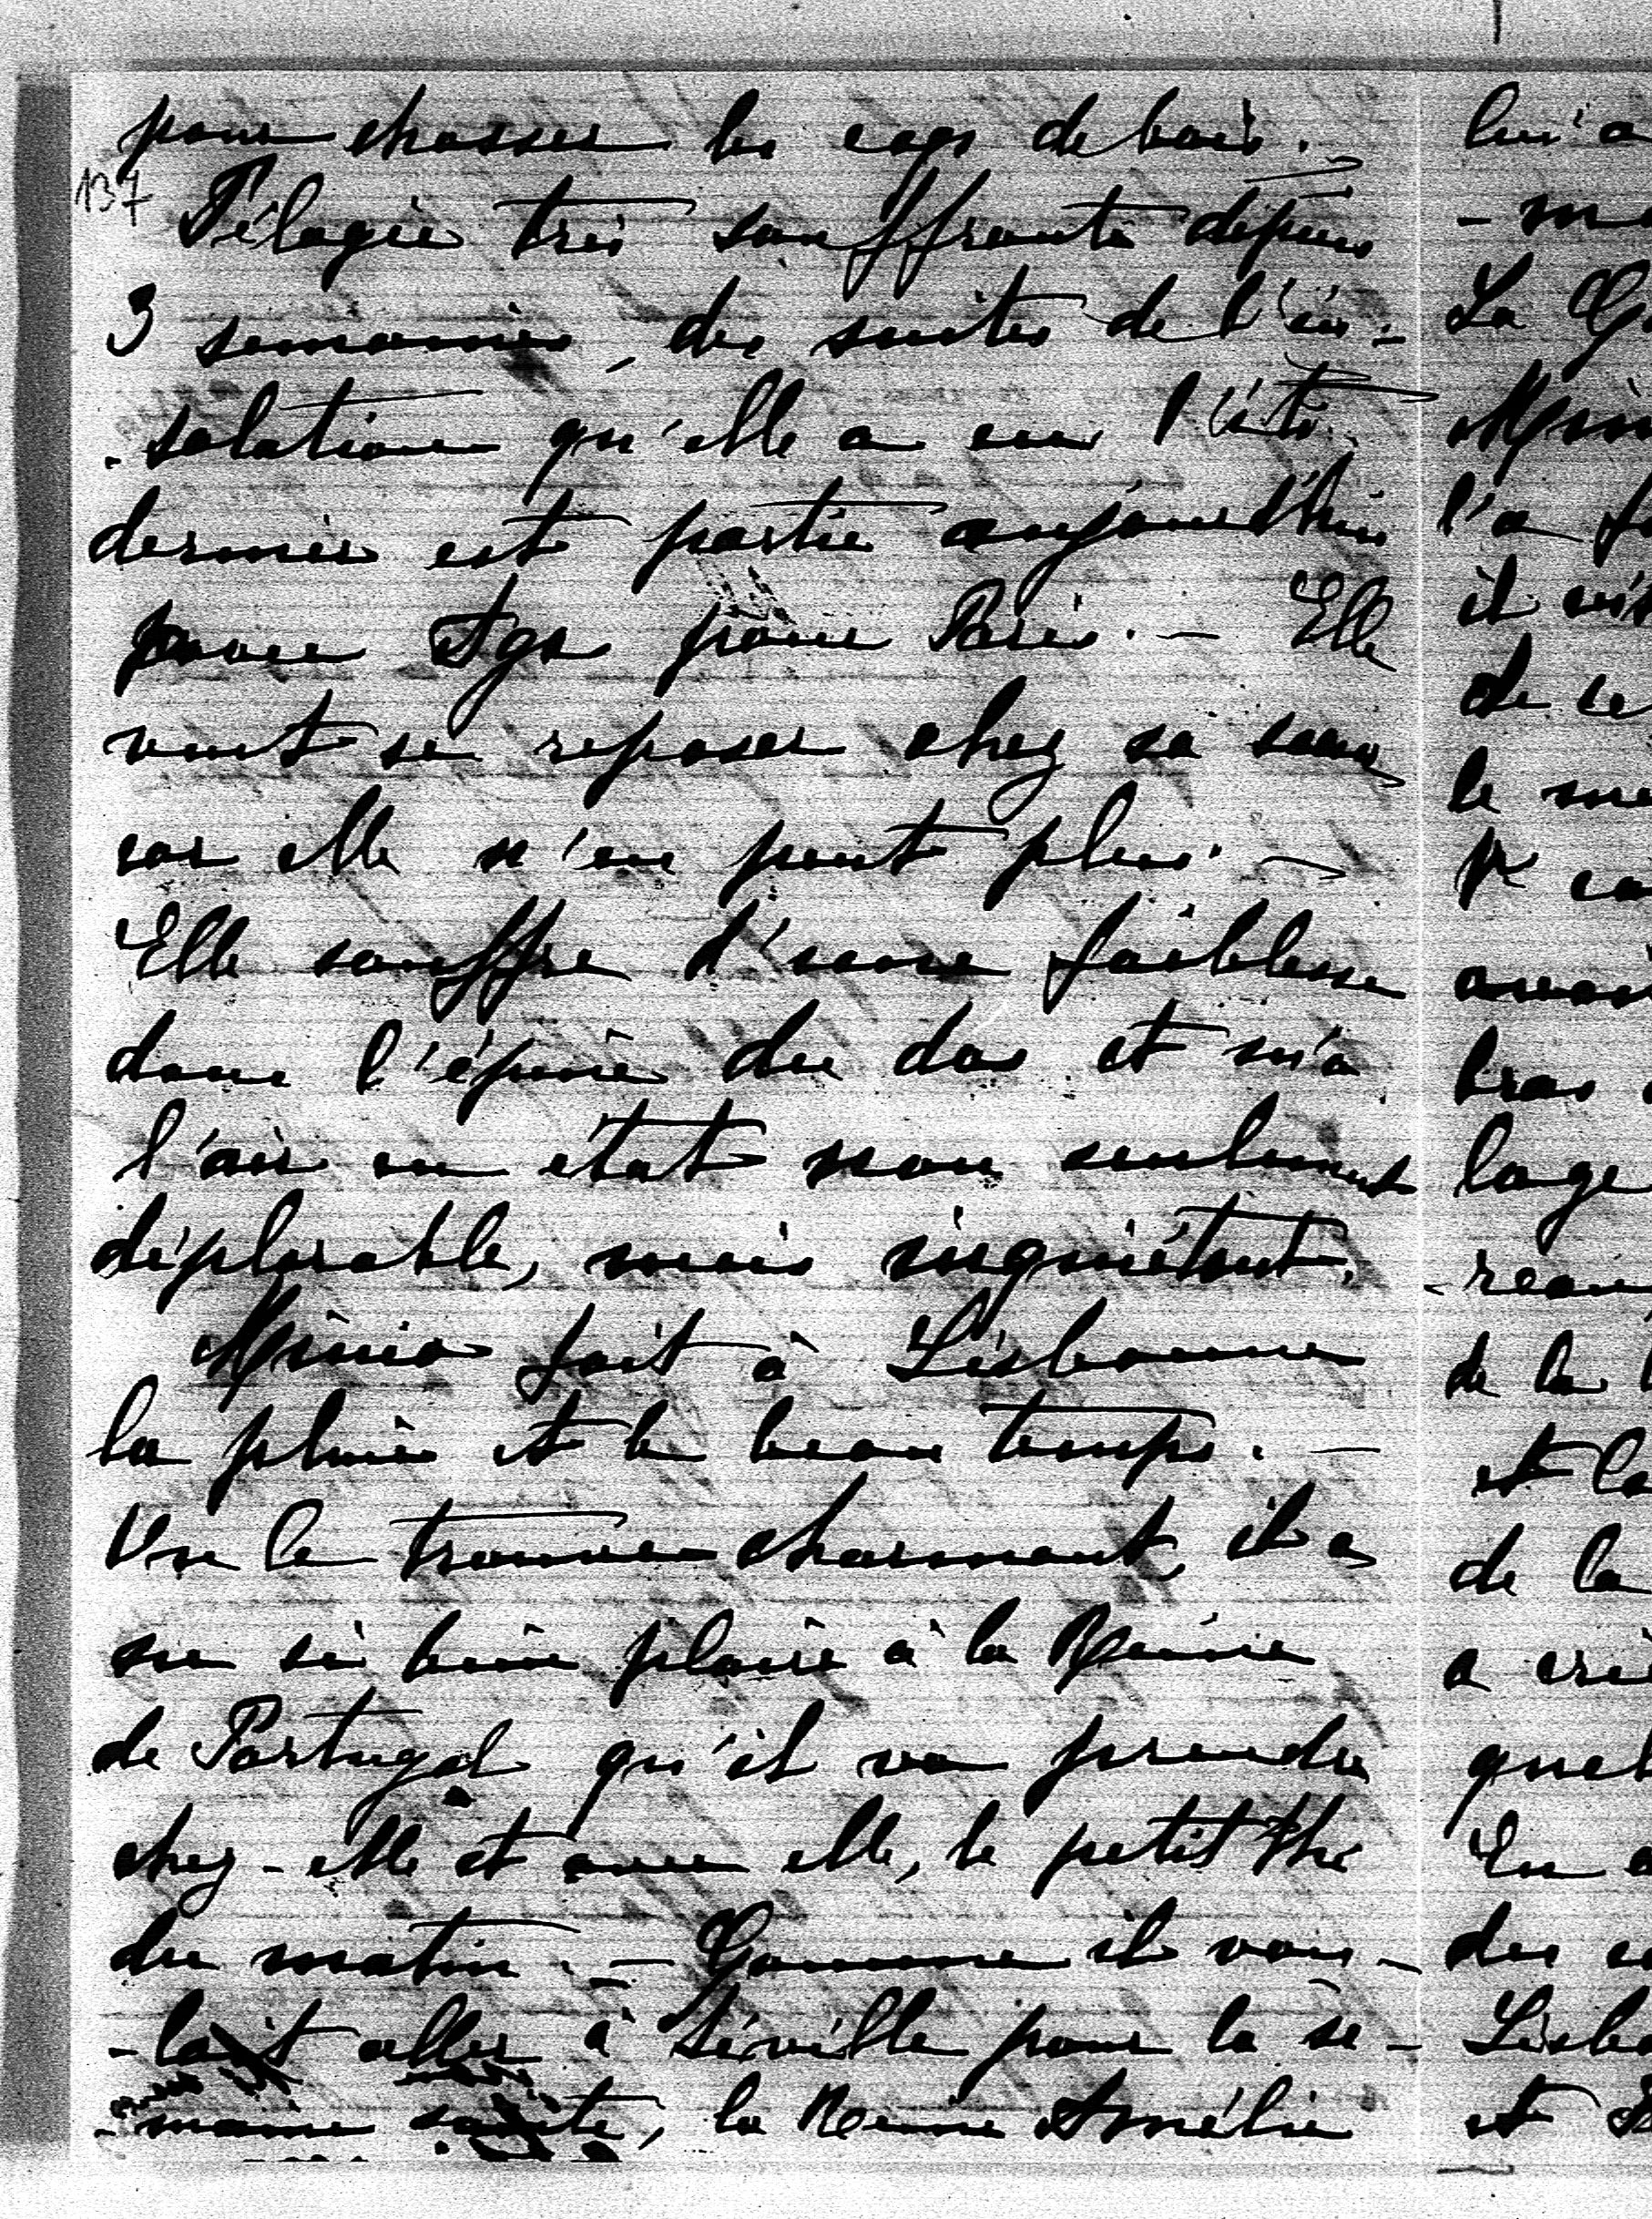 pour chasser les coqs de bois.
137
Pélagie très souffrante depuis
3 semaines, des suites de l'in-
-solation qu'elle a eue l'été
dernier est partie aujourd'hui
pour Paris. — Elle
veut se reposer chez sa sœur
car elle n'en peut plus. —
Elle souffre d'une faiblesse
dans l'épine du dos et m'a
l'air en état non seulement
déplorable, mais inquiétant.
Minio fait à Lisbonne
la pluie et le beau temps. —
On le trouve charmant, il a
su si bien plaire à la Reine
de Portugal qu'il va prendre
chez-elle et avec elle, le petit thé
du matin. — Comme il vou-
-lait aller à Séville pour la se-
-maine sainte, la Reine Amélie
lui a
- m
La
l'a
il
de ce
le
bras
de la
et la
de la
a
quel
du
et